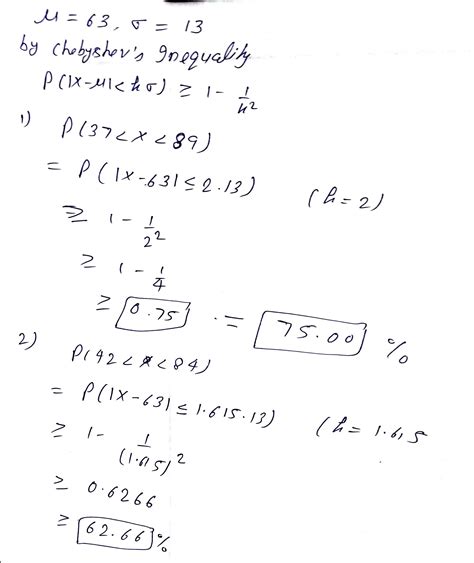 μ = 63, σ = 13
by Chebyshev's Inequality
P(|X-μ|<kσ) ≥ 1 - 1/k²
1) P(37<x<89)
= P(|X-63|≤2.13) (k=2)
≥ 1 - 1/2²
≥ 1 - 1/4
≥ 0.75 . = 75.00 %
2) P(42<x<84)
= P(|X-63|≤1.615.13) (k= 1.615
≥ 1 - 1/(1.615)²
≥ 0.6266
≥ 62.66 %